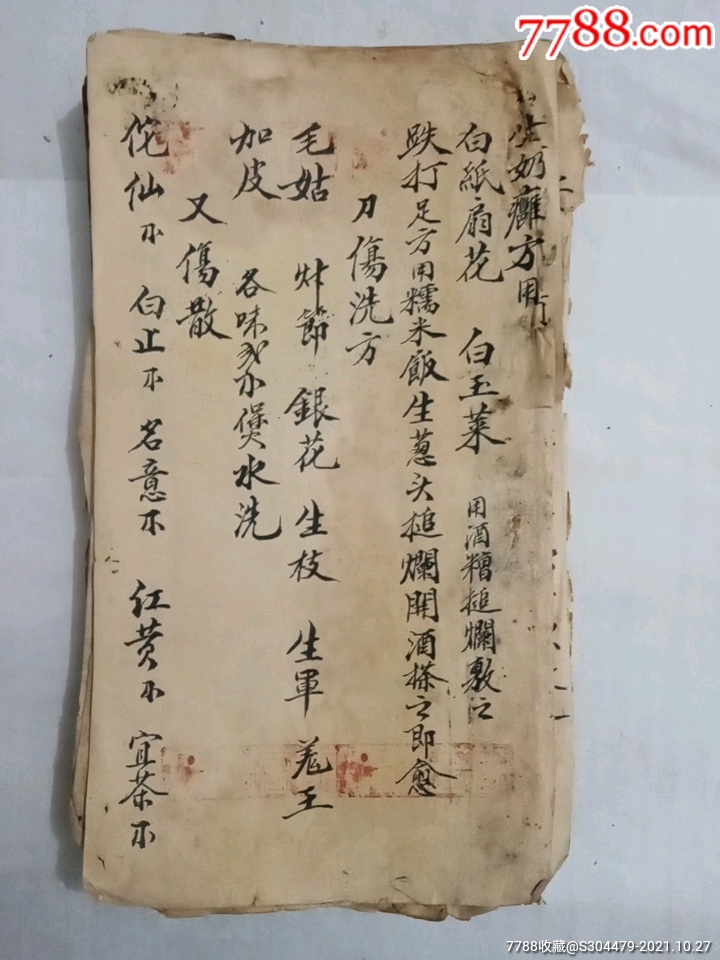 7788.com
生奶癰方用
白紙扇花 白玉菜 用酒糟搥爛敷之
跌打足方用糯米飯生蔥头搥爛開酒搽之即愈
刀傷洗方
毛姑 炸節 銀花 生枝 生軍 羗王
加皮 各味 煲水洗
又傷散
佗仙 白止 名意 红黄 宜茶
7788收藏@S304479-2021.10.27